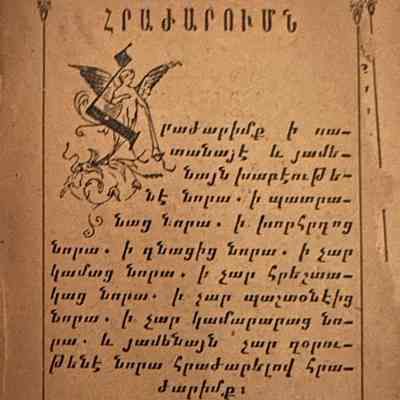 ՀՐԱԺԱՐՈՒՄՆ
Հրաժարիմք ի սա-
տանայէ և յամե-
նայն խաբէութե-
նէ նորա. ի պատրա-
նաց նորա. ի խորհրդոց
նորա. ի գնացից նորա. ի չար
կամաց նորա. ի չար հրեշտա-
կաց նորա. ի չար պաշտօնէից
նորա. ի չար կամարարաց նո-
րա. և յամենայն չար զօրու-
թենէ նորա հրաժարելով հրա-
ժարիմք։